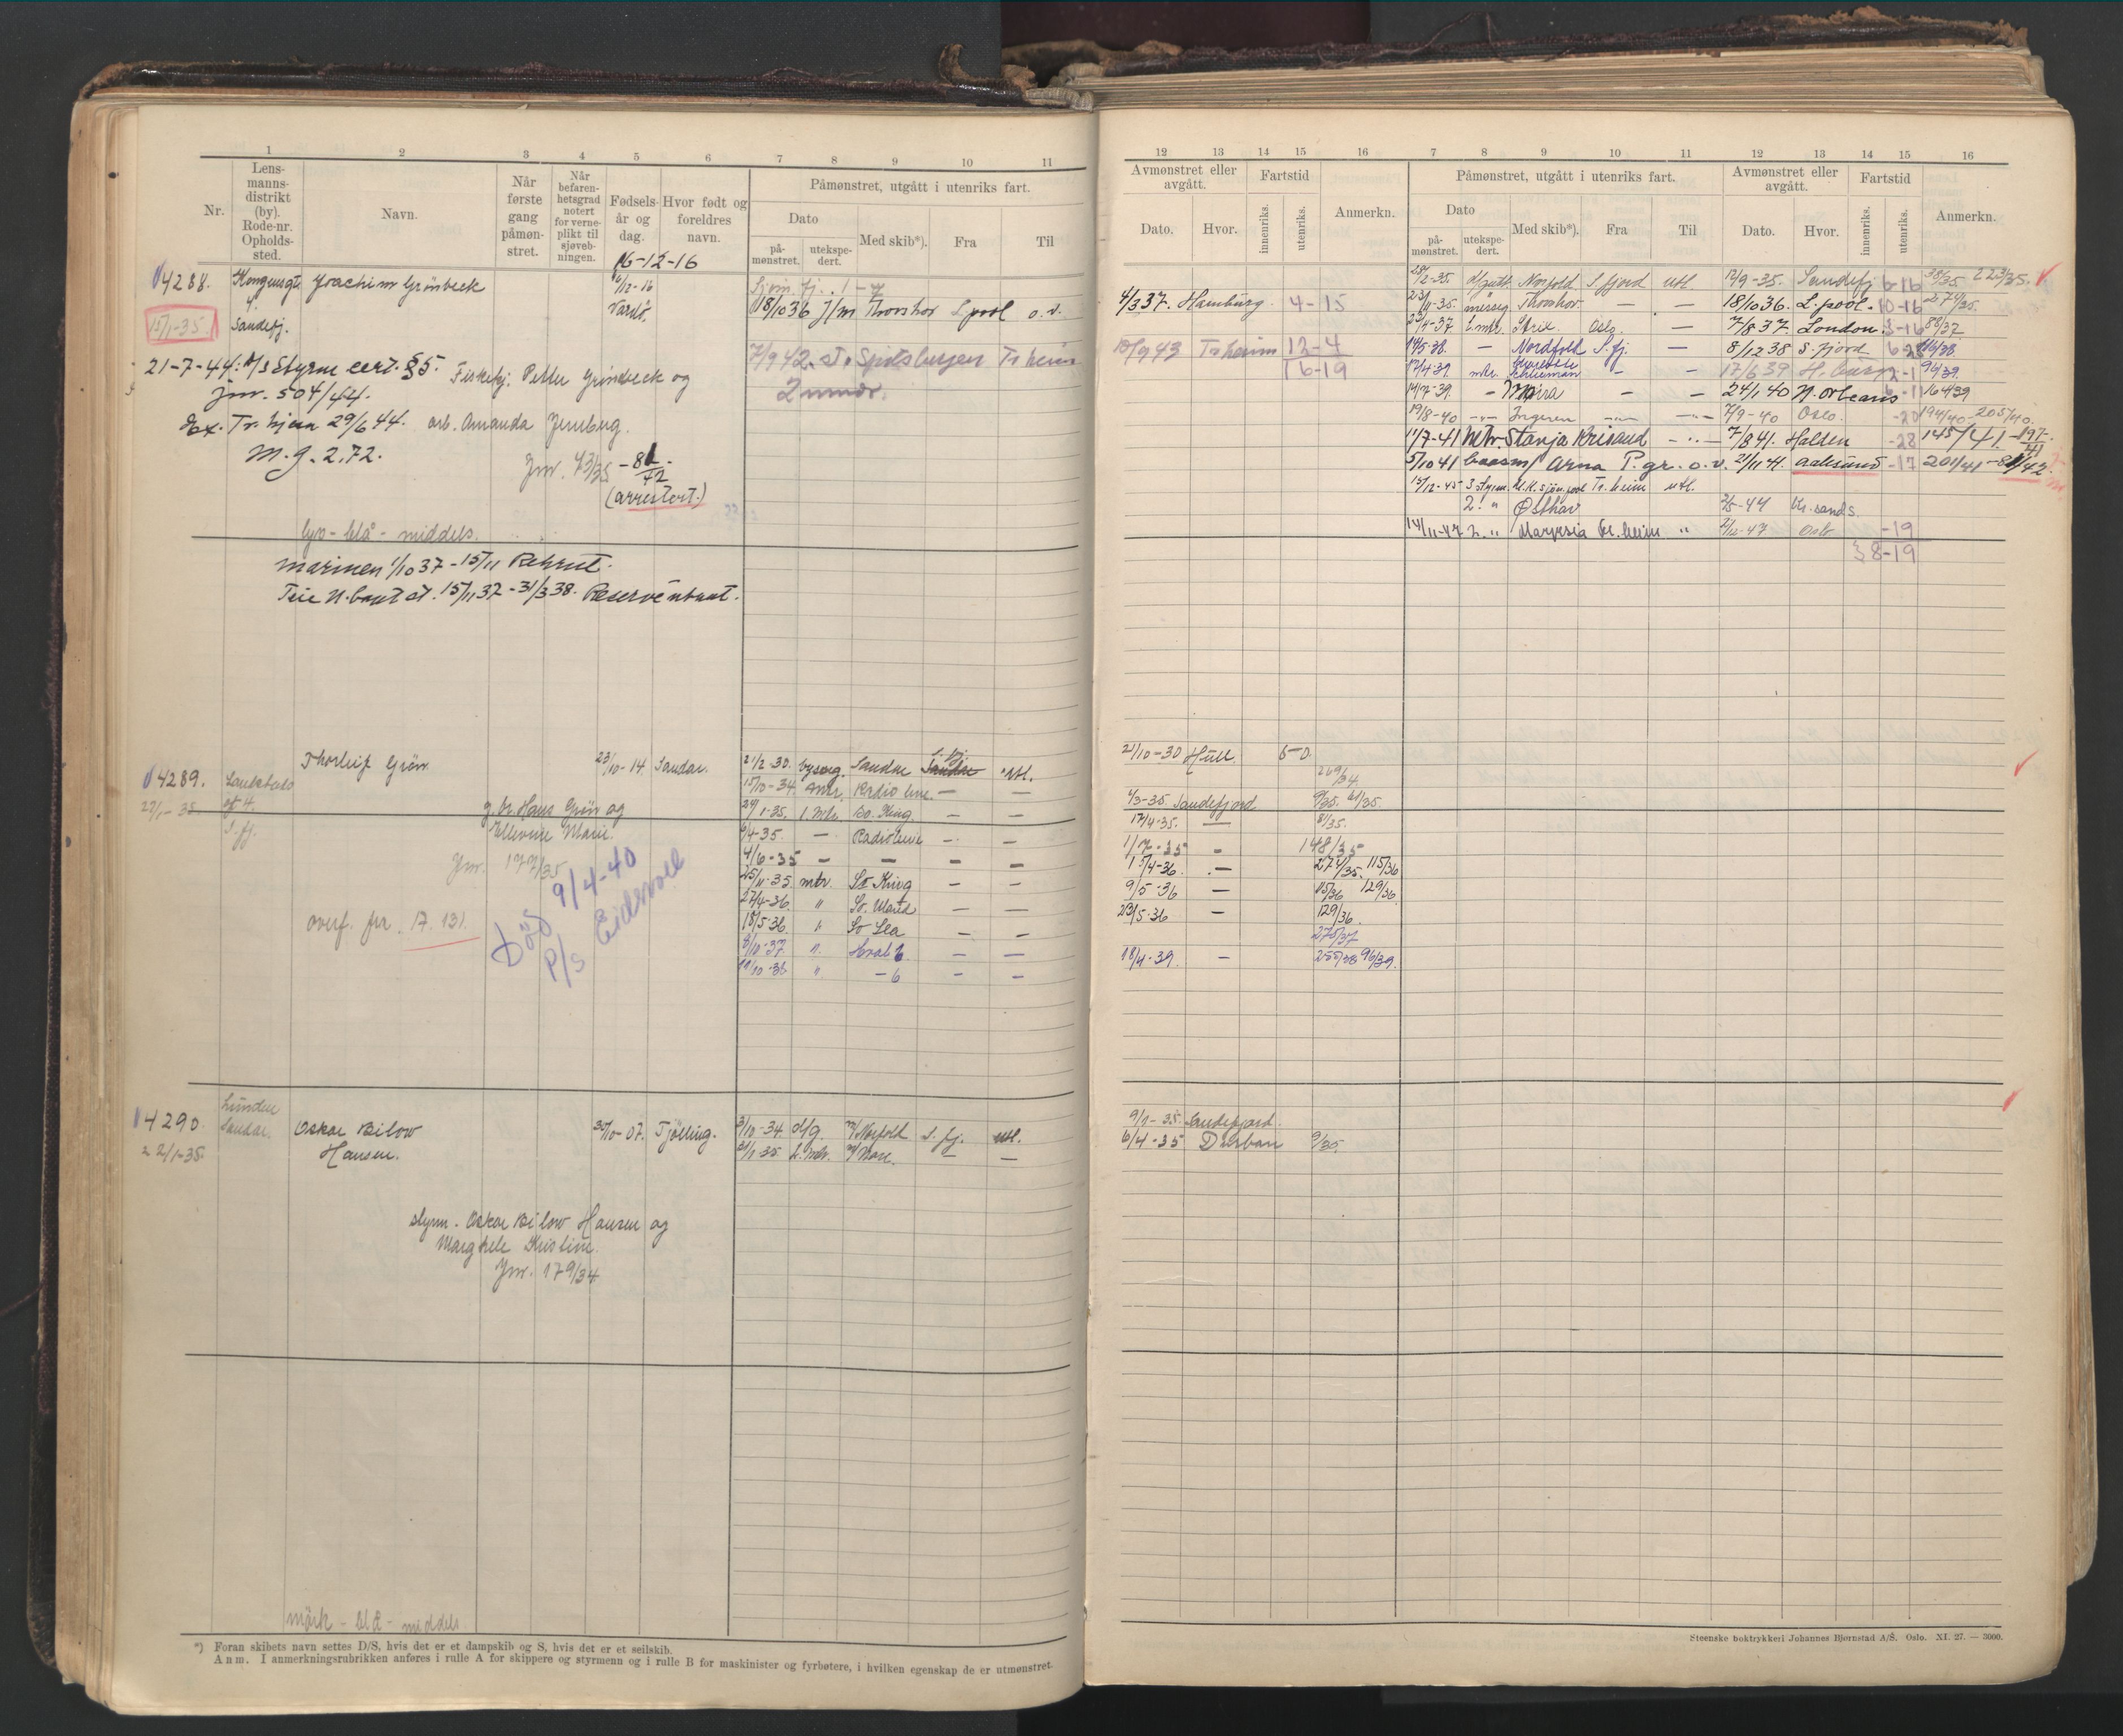 1 2 3 4 5 6 7 8 9 10 11
Nr.
Lensmannsdistrikt (by). Rode-nr. Opholdssted.
Navn.
Når første gang påmønstret.
Når befarenhetsgrad notert for verneplikt til sjøvebningen.
Fødselsår og dag.
Hvor født og foreldres navn.
Påmønstret, utgått i utenriks fart.
Dato
påmønstret.
utekspedert.
Med skib*).
Fra
Til
16-12-16
4288. Kongensgt. Joachim Grönbeck 6/12-16 Sjöm. fj. 1-7
4 Vardö, 18/10 36 J/m Thorshov L.pool o.v.
15/1-35. Sandefj.
7/9 42 Spitsbergen Tr heim
21-7-44: Styrm cert. §5. Fiskekj. Petter Grönbeck og
jnr. 504/44.
Ex. Tr.hjem 29/6 44. arb. Amanda Jernberg.
M.g. 2.72. Jnr. 43/35 -81/42
(arrestort.)
lys - blå - middels.
Marinen 1/10 37 - 15/11 Rekrut.
Teie U.båtst. 15/11 37 - 31/3 38.
4289. Thorleif Grön 23/10-14 Sandar. 21/2-30. Sandar S. fj. Utl.
22/1-35. 4. 15/10-34. Radioleine — —
S. fj. g. br. Hans Grön og 24/1-35. 1.mtr. So. King — —
Ellevine Marie. 9/4-35 — Radioleine — —
Jnr. 177/35 4/6-35 — — — —
25/11-35 mtr. So King — —
27/4-36 " So. — —
Död 9/4-40 15/5-36 " So Sea — —
P/S Eidsvoll 8/10-37 " Hval 6 — —
overf. fra 17. 131. 11/10-38 " — 6 — —
4290 Lunden
Sandar. Oskar Bilow Hansen. 30/10-07. Tjölling. 3/10-34 d/g. Norfold S. fj. utl.
22/1-35. 21/1-35 — —
styrm. Oskar Bilow Hansen og
Margrete Kristine.
Jnr. 179/34
mörk - blå - middels.
*) Foran skibets navn settes D/S, hvis det er et dampskib og S, hvis det er et seilskib.
Anm. I anmerkningsrubrikken anføres i rulle A for skippere og styrmenn og i rulle B for maskinister og fyrbøtere, i hvilken egenskap de er utmønstret.
12 13 14 15 16 7 8 9 10 11 12 13 14 15 16
Avmønstret eller avgått.
Dato.
Hvor.
Fartstid
innenriks.
utenriks.
Anmerkn.
Påmønstret, utgått i utenriks fart.
Dato
påmønstret.
utekspedert.
Med skib*).
Fra
Til
Avmønstret eller avgått.
Dato.
Hvor.
Fartstid
innenriks.
utenriks.
Anmerkn.
28/2-35. Norfold S. fjord utl. 12/9-35. Sandefj 6-16 38/35 223/35.
4/3 37. Hamburg 4-15
23/11-35. Thorshov — — 18/10 36. L.pool. 10-16 274/35.
23/4-37 Oslo. — 7/8 37. London. 3-16 88/37
10/9 43 Trheim 12-4
14/5-38. — Nordfold S. fj. — 8/12 38 S. fjord 6-25 116/38.
16-19
17/4-39. — — 17/6 39 2-1 96/39.
14/7-39. — Mira — — 24/1 40 N. orleans 164/39
19/8-40 —"— Ingeren —"— —"— 7/9-40 Oslo. -20 194/40 - 205/40.
11/7-41 Stanja Krisand —"— 7/8 41. Halden -28 145/41 - 197/41
5/10 41 Arna P.gr. o.v. 21/11 41. Aalesund -17 201/41 - 81/42.
15/12-45 3 styrm. Tr.heim utl.
2. " Østhav 2/5-47 Kr.sands.
14/11-47 2. " Tr.heim " Oslo -19
38-19
21/10-30 Hull 6-0
269/34.
1/3-35. Sandefjord 9/35. 61/35.
17/4-35. — 81/35.
1/7-35 — 148/35
15/4-36. — 274/35. 115/36
9/5-36 — 115/36 129/36
23/5-36 — 129/36.
275/37
18/4-39. — 255/38 96/39.
9/1-35. Sandefjord.
6/4-35 Durban 9/35.
Steenske boktrykkeri Johannes Bjørnstad A/S. Oslo. XI. 27. — 3000.